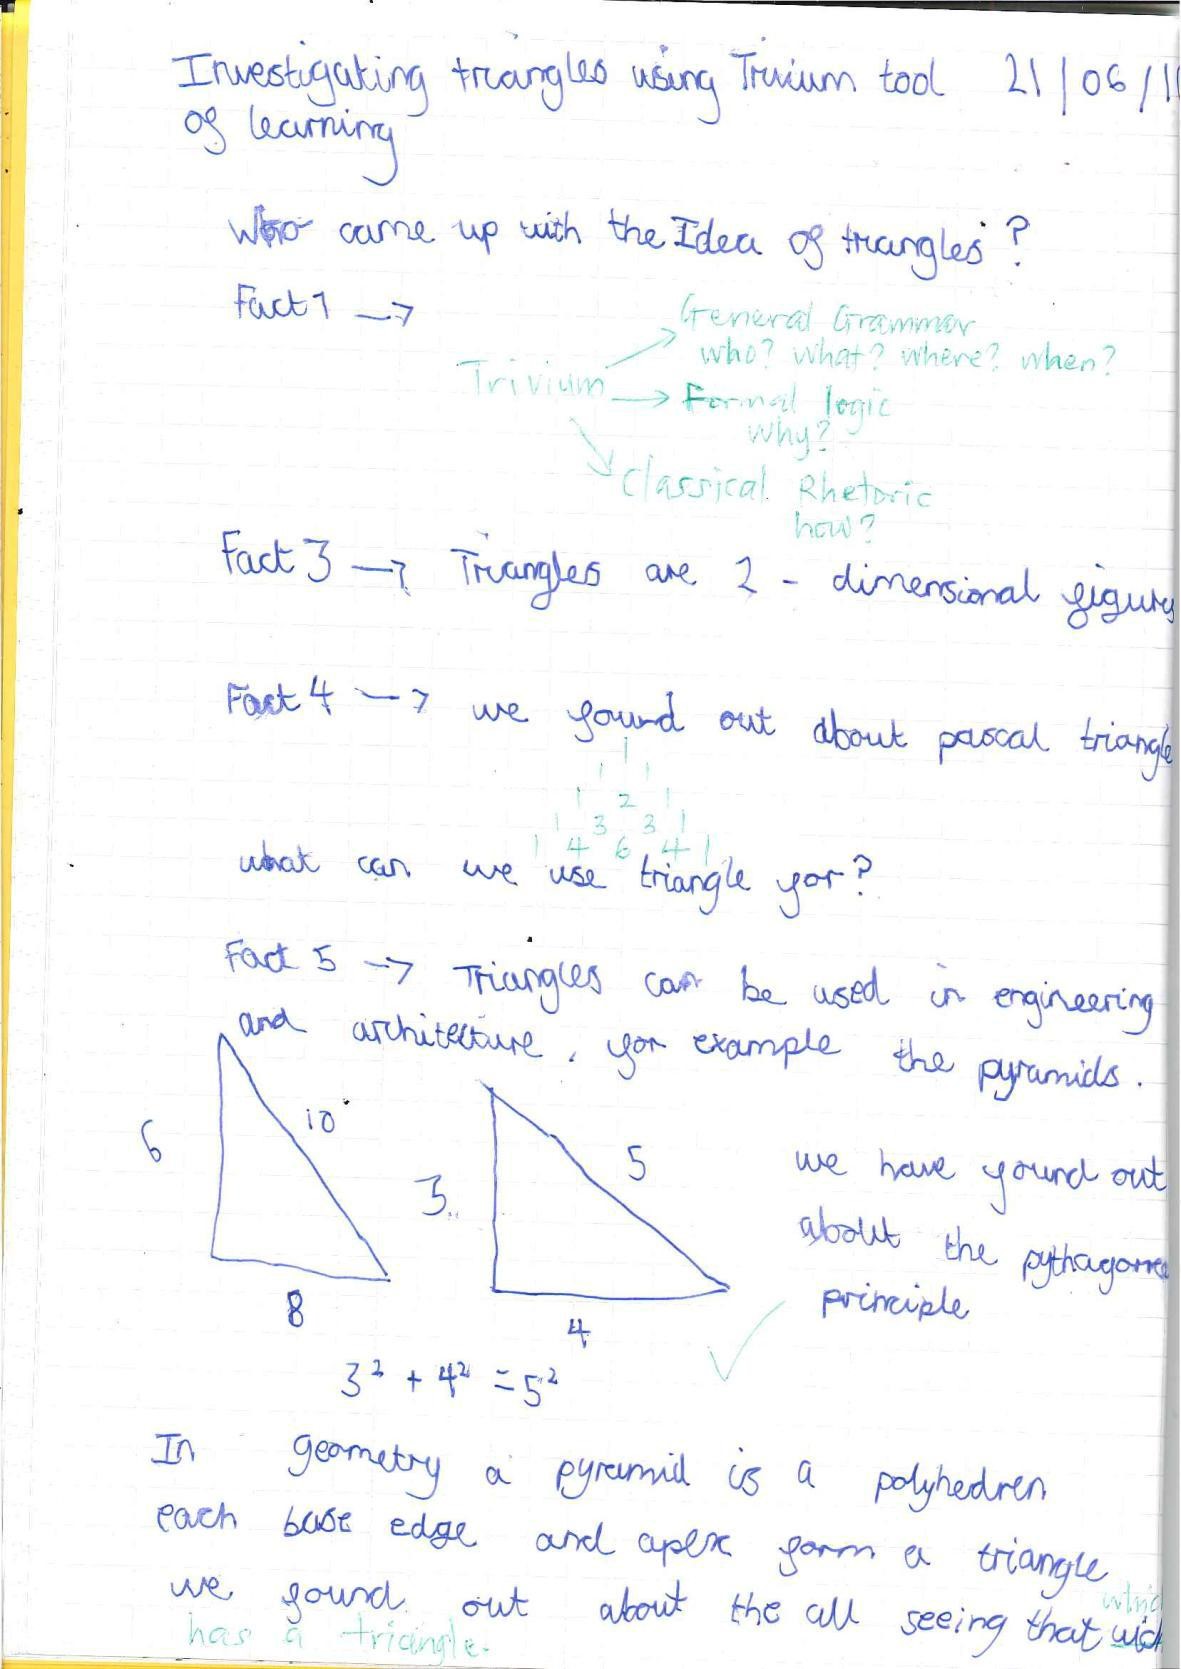 Investigating triangles using Trivium tool 21/06/11
of learning
Who came up with the Idea of triangles?
Fact 1 →
General Grammar
who? what? where? when?
Trivium → Formal logic
why?
Classical Rhetoric
how?
Fact 3 → Triangles are 2 - dimensional figures
Fact 4 → we found out about pascal triangle
1
1 1
1 2 1
1 3 3 1
1 4 6 4 1
what can we use triangle for?
Fact 5 → Triangles can be used in engineering
and architecture, for example the pyramids.
6 10 8
3 5 4
we have found out
about the
principle
3² + 4² = 5²
In geometry a pyramid is a polyhedren
each base edge and apex form a triangle
we found out about the all seeing that
has a triangle.